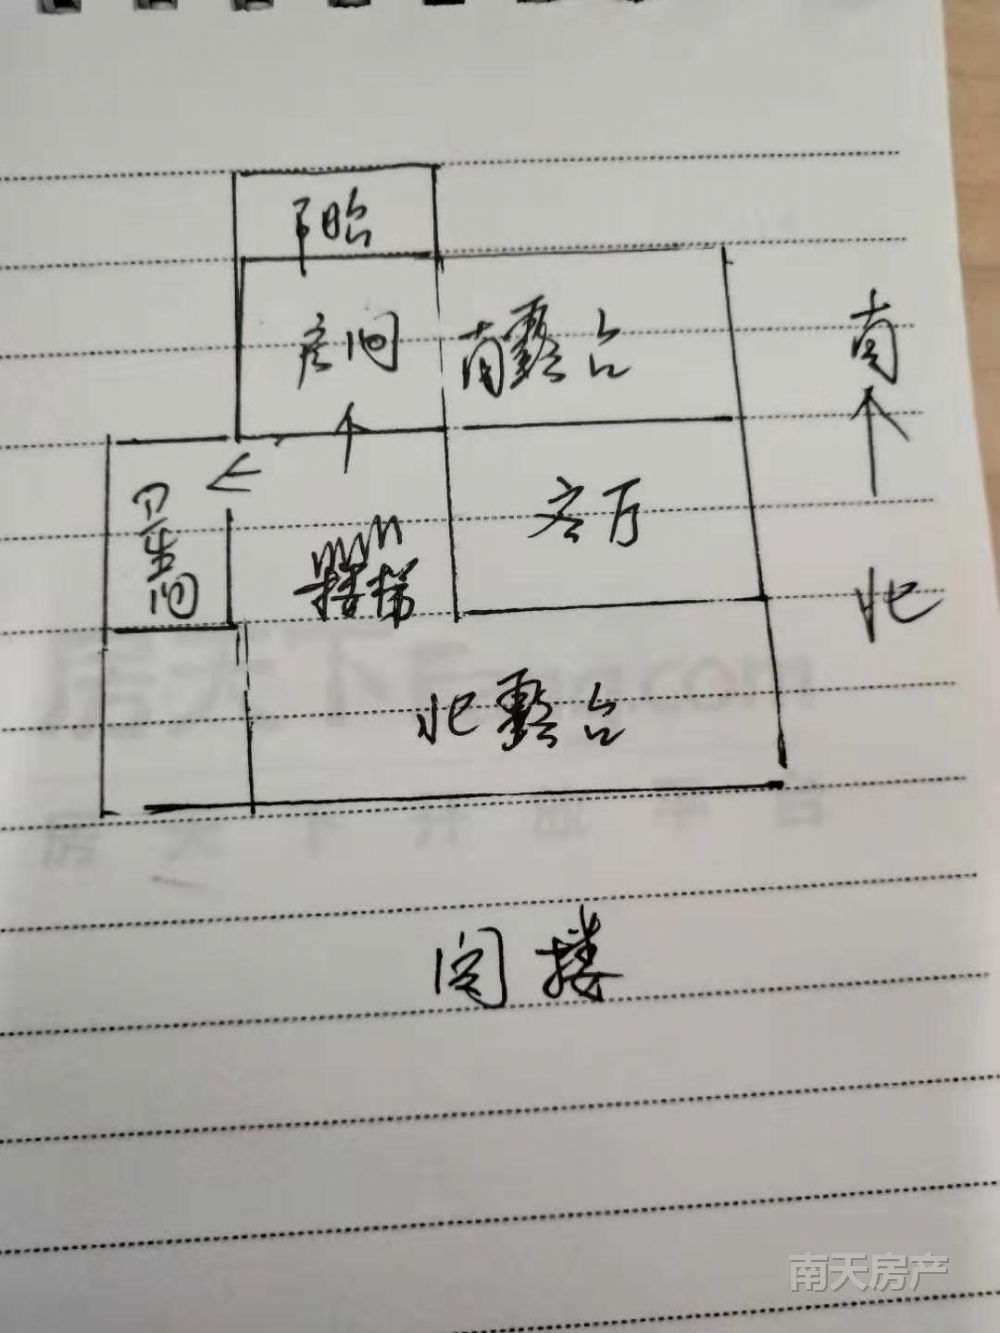 阳台
房间
南露台
南
卫生间
客厅
楼梯
北
北露台
阁楼
房天下 Fang.com
房天下开放平台
南天房产